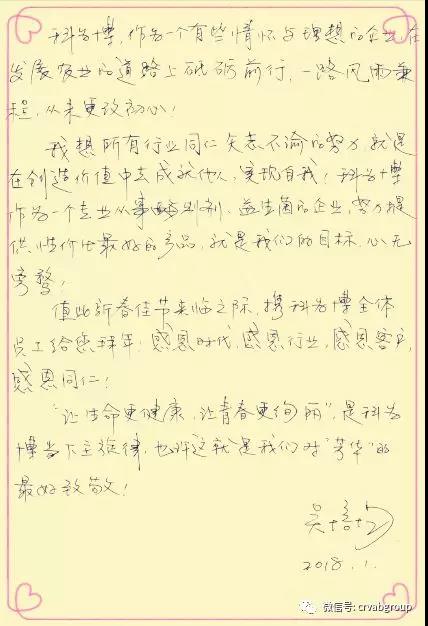 科为博,作为一个有些情怀与理想的企业,在
发展农业的道路上砥砺前行,一路风雨兼
程,从未更改初心!
我想所有行业同仁矢志不渝的努力,就是
在创造价值中去成就他人,实现自我!科为博
作为一个专业从事酶制剂、益生菌的企业,努力提
供性价比最好的产品,就是我们的目标,心无
旁骛!
值此新春佳节来临之际,携科为博全体
员工给您拜年,感恩时代,感恩行业,感恩客户,
感恩同仁!
"让生命更健康,让青春更绚丽",是科为
博当下主旋律,也许这就是我们对"芳华"的
最好致敬!
2018.1.
微信号: crvabgroup